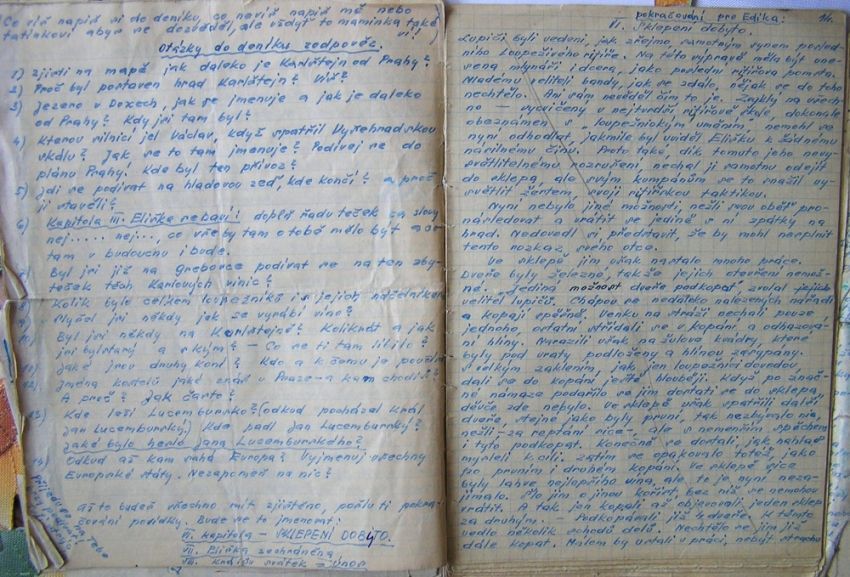 Co víš napiš si do deníku, co nevíš napiš mě nebo
tatínkovi abys se dozvěděl, ale všdyť to maminka také
ví!
Otázky do deníku zodpověz.
1) Zjisti na mapě jak daleko je Karlštejn od Prahy?
2) Proč byl postaven hrad Karlštejn? Víš?
3) Jezero v Doxech, jak se jmenuje a jak je daleko
od Prahy? Kdy jsi tam byl?
4) Kterou silnicí jel Václav, když spatřil Vyšehradskou
skálu? Jak se to tam jmenuje? Podívej se do
plánu Prahy. Kde byl ten přívoz?
5) Jdi se podívat na hladovou zeď, kde končí? a proč
ji stavěli?
6) Kapitola III. Eliška se baví: doplň řadu teček za slovy
nej..... nej..., co vše by tam o tobě mělo být a
tam v budoucnu i bude.
Byl jsi již na Grebovce podívat se na ten zby-
teček těch Karlových vinic?
Kolik bylo celkem loupežníků i s jejich náčelníkem
Slyšel jsi někdy jak se vyrábí víno?
10) Byl jsi někdy na Karlštejně? Kolikrát a jak
jsi byl starý a s kým? - Co se ti tam líbilo?
11) Jaké jsou druhy koní? Kdo a k čemu je
12) Jména kostelů jaké znáš v Praze - a kam chodíš?
A proč? Jak často?
13) Kde leží Lucembursko? (odkud pocházel král
Jan Lucemburský) Kde padl Jan Lucemburský?
Jaké bylo heslo Jana Lucemburského?
14) Odkud až kam sahá Evropa? Vyjmenuj všechny
Evropské státy. Nezapomeň na nic?
až to budeš všechno mít zjištěno, pošlu ti pokra-
čování povídky. Bude se to jmenovat:
VI. kapitola - SKLEPENÍ DOBYTO.
VII. Eliška zachráněna
VIII. Králův svátek
pokračování pro Edíka: 14.
VI. Sklepení dobyto.
Lupiči byli vedeni, jak zřejmo, samotným synem posled-
ního loupeživého rytíře. Na této výpravě měla být une-
sena mlynáři, i dcera, jako poslední rytířova pomsta.
Mladému veliteli bandy, jak se zdálo, nějak se do toho
nechtělo. Ani sám nevěděl čím to je. Zvyklý na všech-
no - vycvičený v nejtvrdší rytířově škole, dokonale
obeznámen s "loupežnickým" uměním, nemohl se
nyní odhodlat, jakmile byl uviděl Elišku k žádnému
násilnému činu. Proto také, dík tomuto jeho nevy-
světlitelnému rozrušení, nechal ji samotnu odejít
do sklepa, ale svým kumpánům se to snažil vy-
světlit žertem, svojí rytířskou taktikou.
Nyní nebylo jiné možnosti, nežli svou oběť pro-
následovat a vrátit se jedině s ní zpátky na
hrad. Nedovedl si představit, že by mohl nesplnit
tento rozkaz svého otce.
Ve sklepě jim však nastalo mnoho práce.
Dveře byly železné, takže jejich otevření nemož-
né. Jediná možnost dveře podkopat, zvolal
velitel lupičů. Chápou se nedaleko nalezených nářadí
a kopají Venku na stráži nechali pouze
jednoho, ostatní střídali se v kopání a odhazová-
ní hlíny. Narazili však na žulové kvádry, které
byly pod vraty podloženy a hlínou zasypány.
S velkým zaklením, jak jen loupežníci dovedou,
dali se do kopání ještě hlouběji. Když po znač-
né námaze podařilo se jim dostati se do sklepa,
děvče zde nebylo. Ve sklepě však spatřili další
dveře, stejné jako byly první, tak nezbývalo nic,
nežli - za reptání sice - ale s nemenším spěchem
i tyto podkopat. Konečně se dostali, jak nahlas
mysleli k cíli. Zatím se opakovalo totéž, jako
po prvním i druhém kopání. Ve sklepě sice
byly lahve nejlepšího vína, ale to je nyní neza-
jímalo. Šlo jim o jinou kořist, bez níž se nemohou
vrátit. A tak jen kopali až objevovali jeden sklep
za druhým. - Podkopávali již dveře. K těmto
vedlo několik schodů dolů. Nechtělo se jim již
dále kopat. Málem by ustali v práci, nebýt strachu